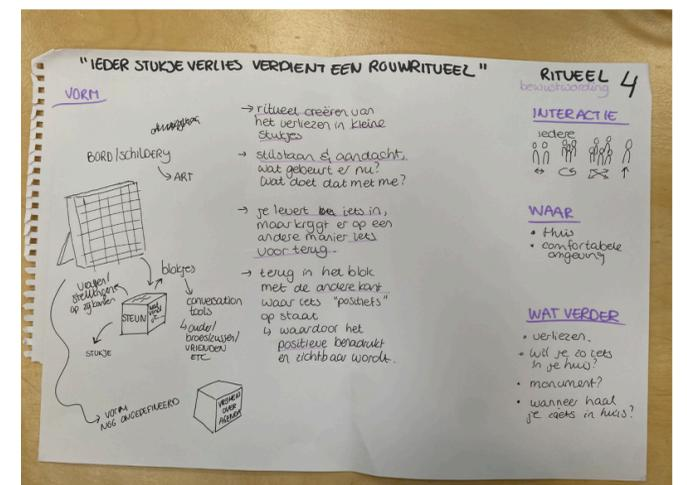 "IEDER STUKJE VERLIES VERDIENT EEN ROUWRITUEEL"
RITUEEL 4
bewustwording
VORM
BORD/SCHILDERIJ
→ ART
vragen/
stellingen
op zijkanten
blokjes
STEUN
STUKJE
conversation
tools
↳ ouder/
broers/zussen/
VRIENDEN
ETC
→ VORM
NOG ONGEDEFINEERD
VRIJHEID
OVER
AGENDA
→ ritueel creëren van
het verliezen in kleine
stukjes
→ stilstaan & aandacht.
wat gebeurt er nu?
wat doet dat met me?
→ je levert iets in,
maar krijgt er op een
andere manier iets
voor terug.
→ terug in het blok
met de andere kant
waar iets "positiefs"
op staat
↳ waardoor het
positieve benadrukt
en zichtbaar wordt.
INTERACTIE
iedere
WAAR
• thuis
• comfortabele
omgeving
WAT VERDER
• verliezen.
• wil je zo iets
in je huis?
• monument?
• wanneer haal
je zoiets in huis?